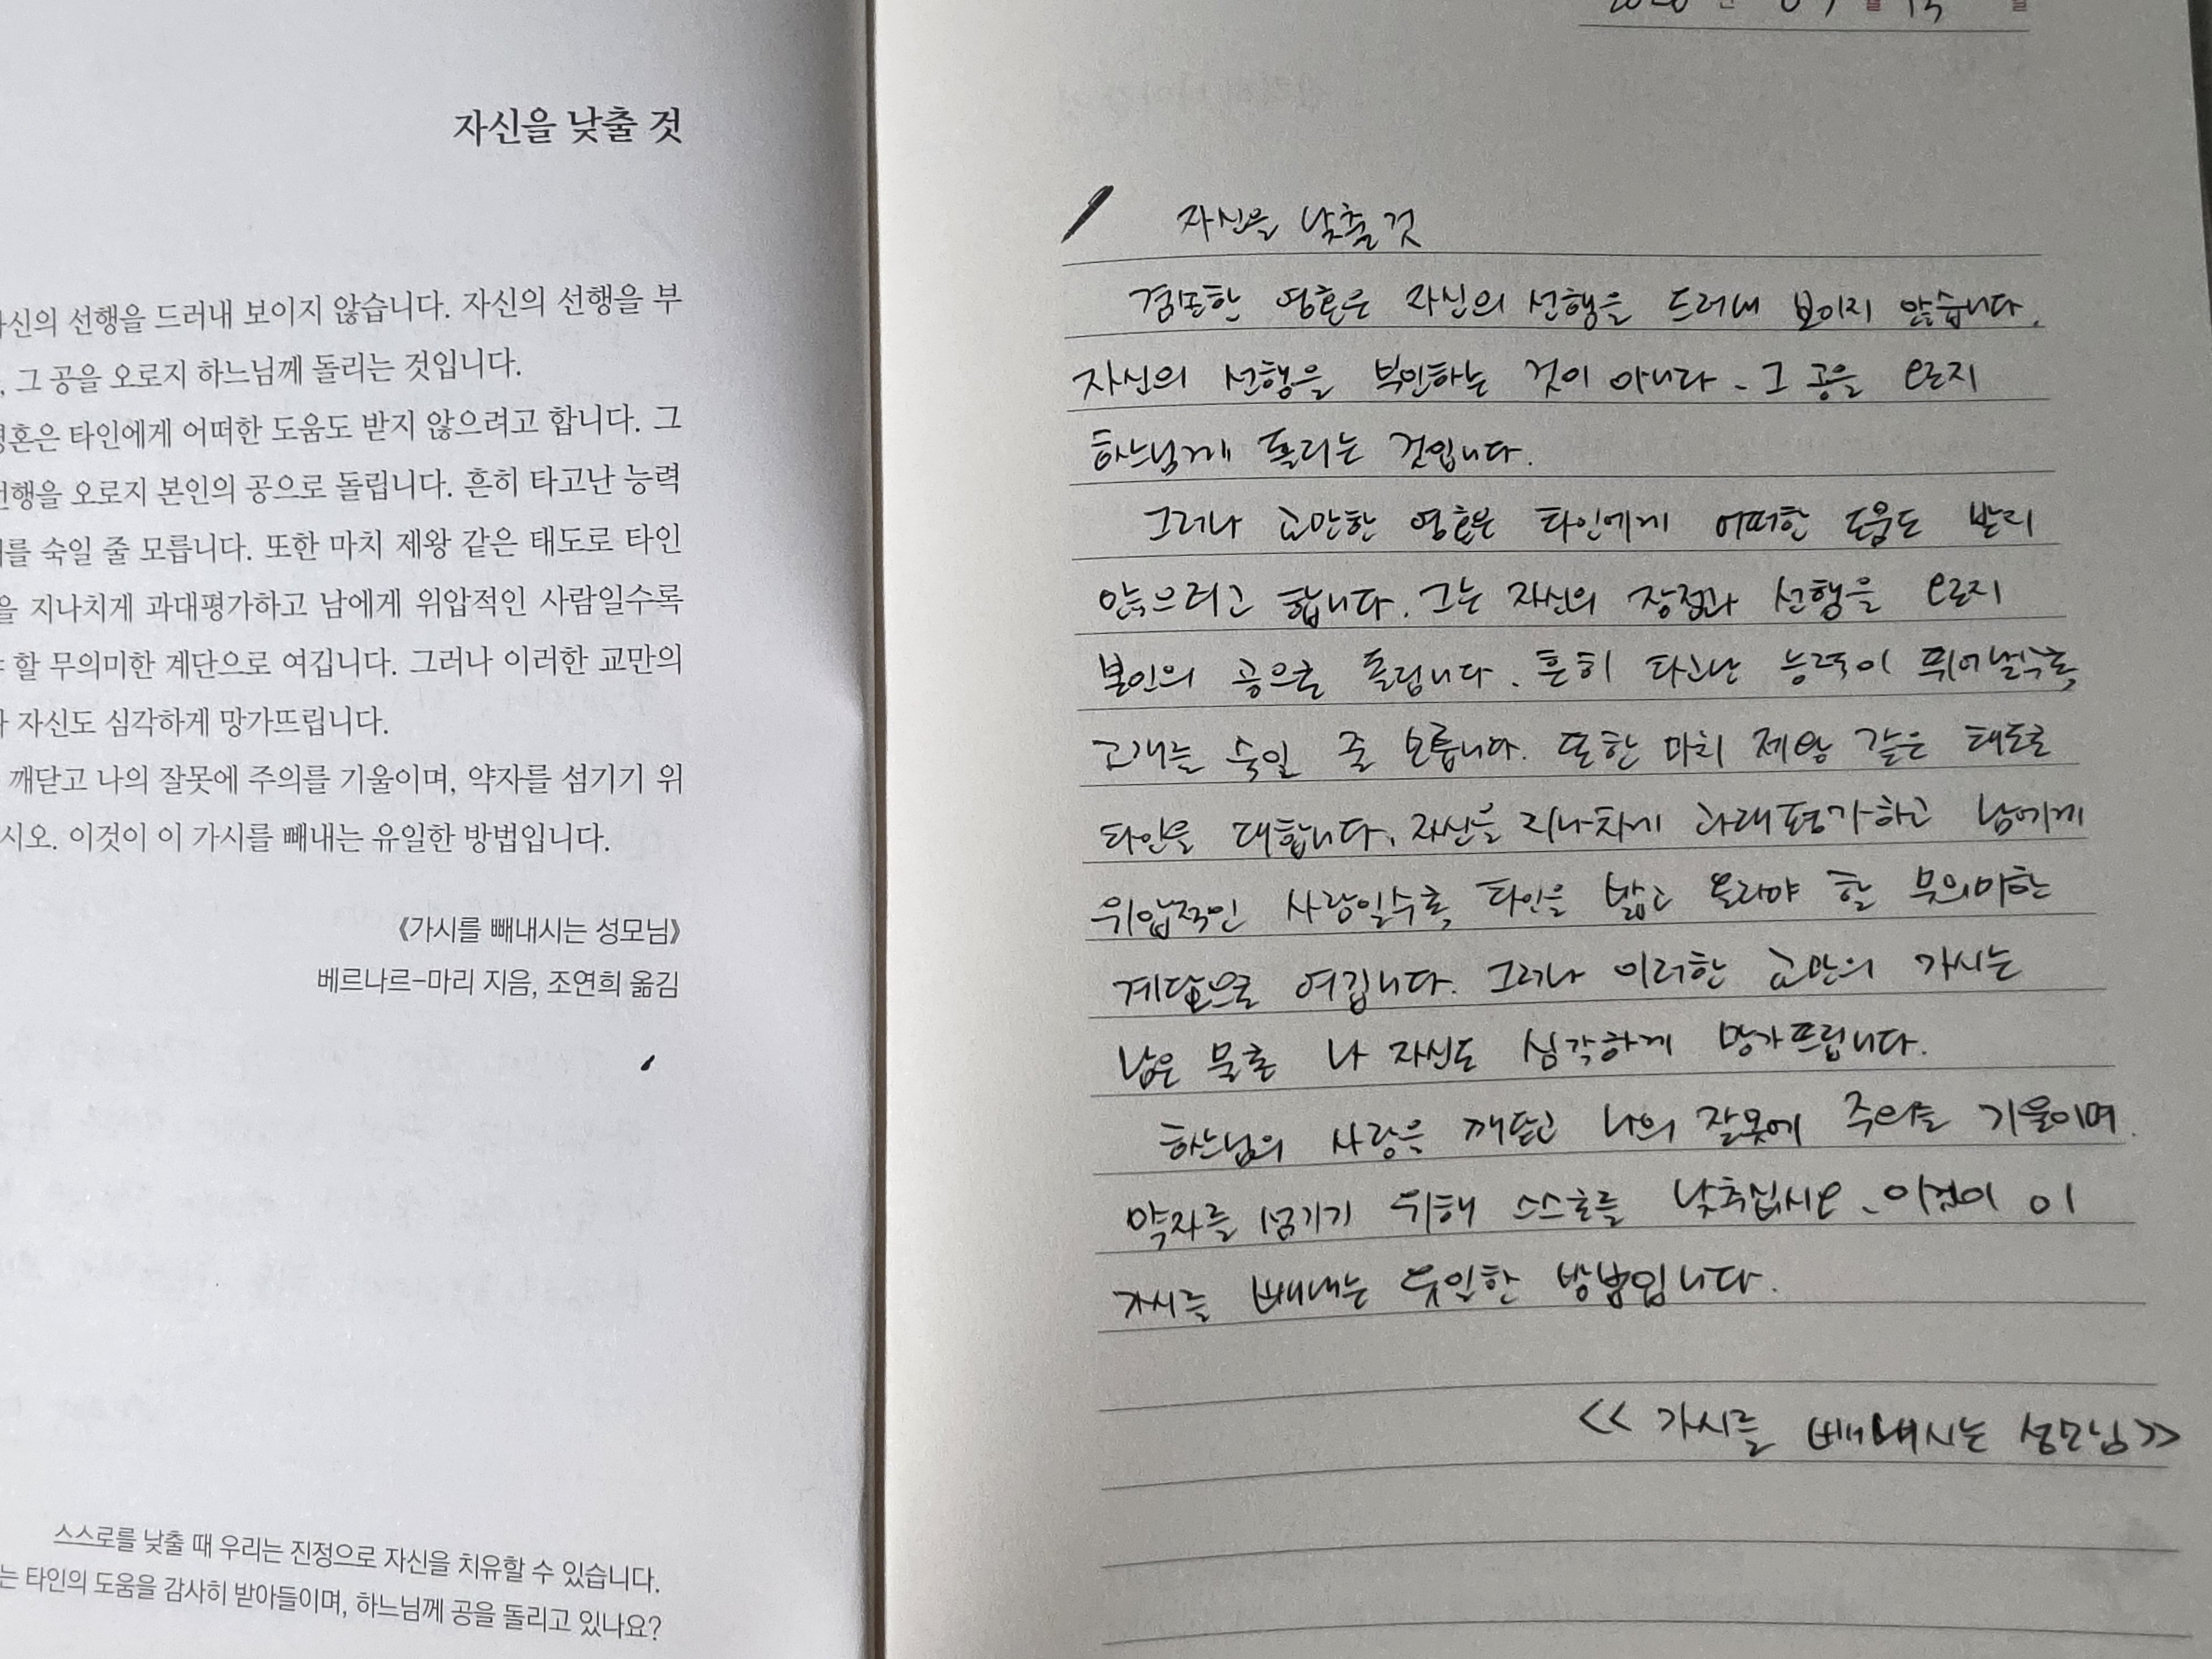 자신을 낮출 것
자신의 선행을 드러내 보이지 않습니다. 자신의 선행을 부
, 그 공을 오로지 하느님께 돌리는 것입니다.
영혼은 타인에게 어떠한 도움도 받지 않으려고 합니다. 그
선행을 오로지 본인의 공으로 돌립니다. 흔히 타고난 능력
를 숙일 줄 모릅니다. 또한 마치 제왕 같은 태도로 타인
을 지나치게 과대평가하고 남에게 위압적인 사람일수록
할 무의미한 계단으로 여깁니다. 그러나 이러한 교만의
자신도 심각하게 망가뜨립니다.
깨닫고 나의 잘못에 주의를 기울이며, 약자를 섬기기 위
시오. 이것이 이 가시를 빼내는 유일한 방법입니다.
《가시를 빼내시는 성모님》
베르나르-마리 지음, 조연희 옮김
스스로를 낮출 때 우리는 진정으로 자신을 치유할 수 있습니다.
는 타인의 도움을 감사히 받아들이며, 하느님께 공을 돌리고 있나요?
자신을 낮출 것
겸손한 영혼은 자신의 선행을 드러내 보이지 않습니다.
자신의 선행을 부인하는 것이 아니라, 그 공을 오로지
하느님께 돌리는 것입니다.
그러나 교만한 영혼은 타인에게 어떠한 도움도 받지
않으려고 합니다. 그는 자신의 장점과 선행을 오로지
본인의 공으로 돌립니다. 흔히 타고난 능력이 뛰어날수록,
고개를 숙일 줄 모릅니다. 또한 마치 제왕 같은 태도로
타인을 대합니다. 자신을 지나치게 과대평가하고 남에게
위압적인 사람일수록, 타인을 밟고 올라야 할 무의미한
계단으로 여깁니다. 그러나 이러한 교만의 가시는
남은 물론 나 자신도 심각하게 망가뜨립니다.
하느님의 사랑을 깨닫고 나의 잘못에 주의를 기울이며,
약자를 섬기기 위해 스스로를 낮추십시오. 이것이 이
가시를 빼내는 유일한 방법입니다.
<< 가시를 빼내시는 성모님>>